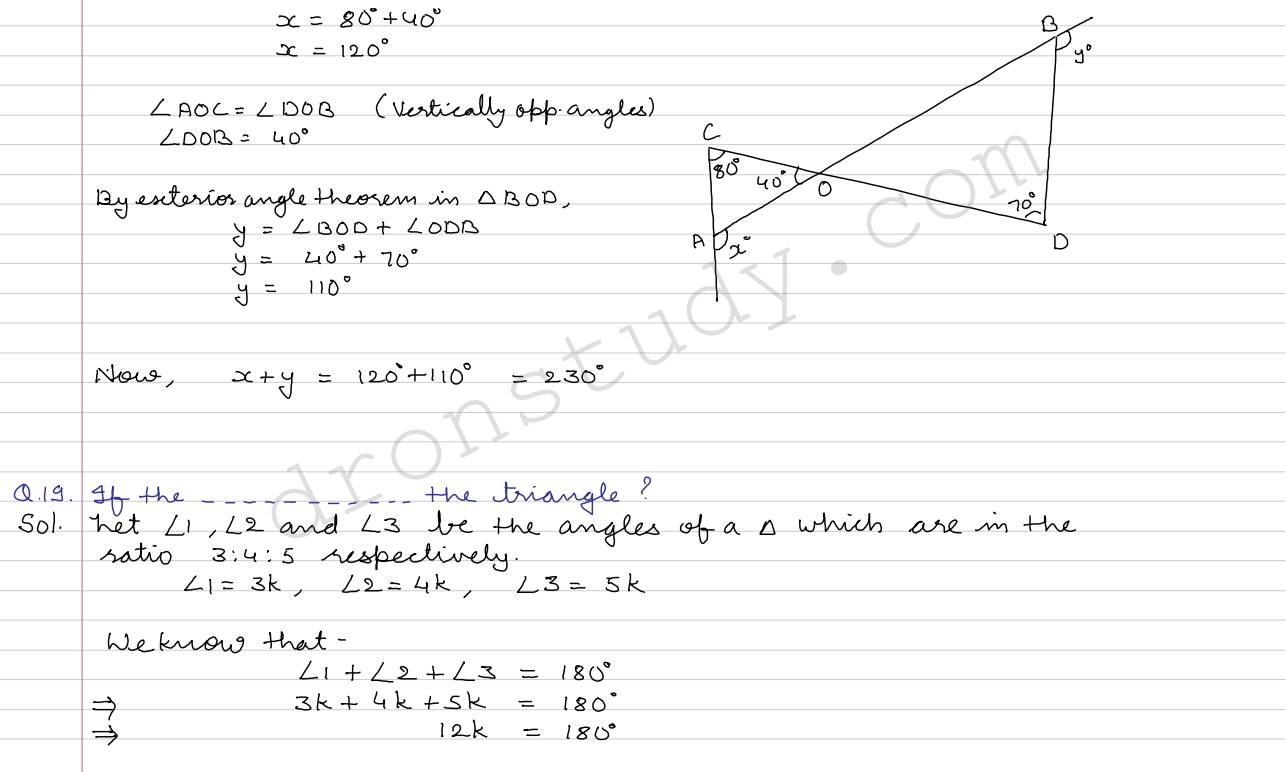 x = 80° + 40°
x = 120°
∠AOC = ∠DOB (Vertically opp. angles)
∠DOB = 40°
By exterior angle theorem in △BOD,
y = ∠BOD + ∠ODB
y = 40° + 70°
y = 110°
B
y°
C
80°
40°
O
70°
A
x°
D
Now, x+y = 120°+110° = 230°
Q.19. If the ------------ the triangle?
Sol. Let ∠1, ∠2 and ∠3 be the angles of a △ which are in the
ratio 3:4:5 respectively.
∠1 = 3k, ∠2 = 4k, ∠3 = 5k
We know that -
∠1 + ∠2 + ∠3 = 180°
⇒ 3k + 4k + 5k = 180°
⇒ 12k = 180°
dronstudy.com